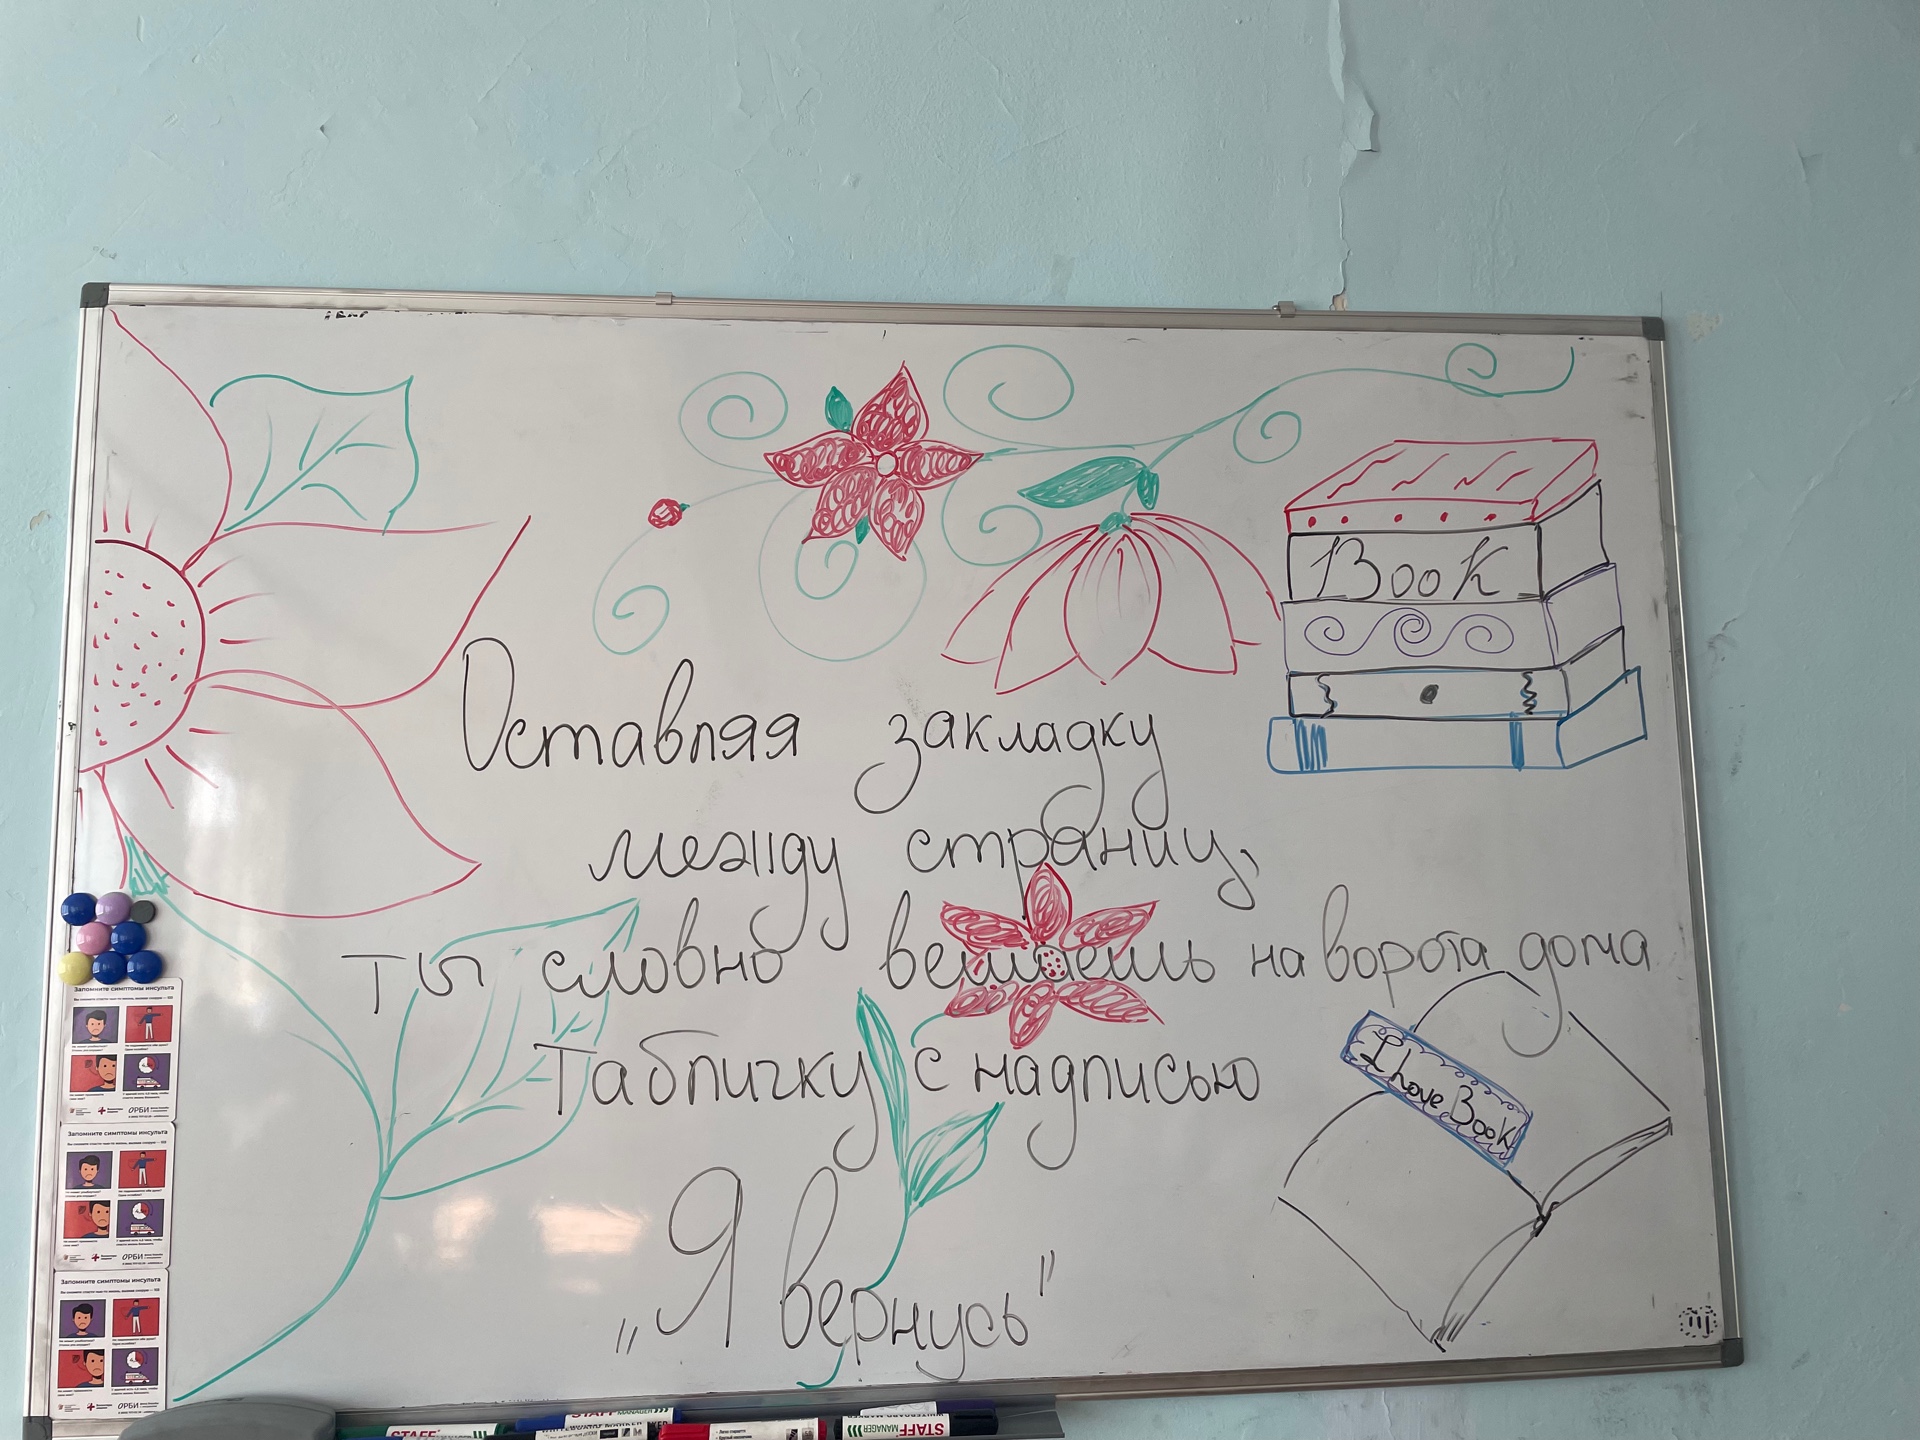 Book
Оставляя закладку
между страниц,
ты словно вешаешь на ворота дома
Табличку с надписью
„Я вернусь"
I Love Book
Запомните симптомы инсульта
ОРБИ
Запомните симптомы инсульта
ОРБИ
Запомните симптомы инсульта
ОРБИ
STAFF
STAFF MANAGER
STAFF MANAGER
WHITEBOARD MARKER